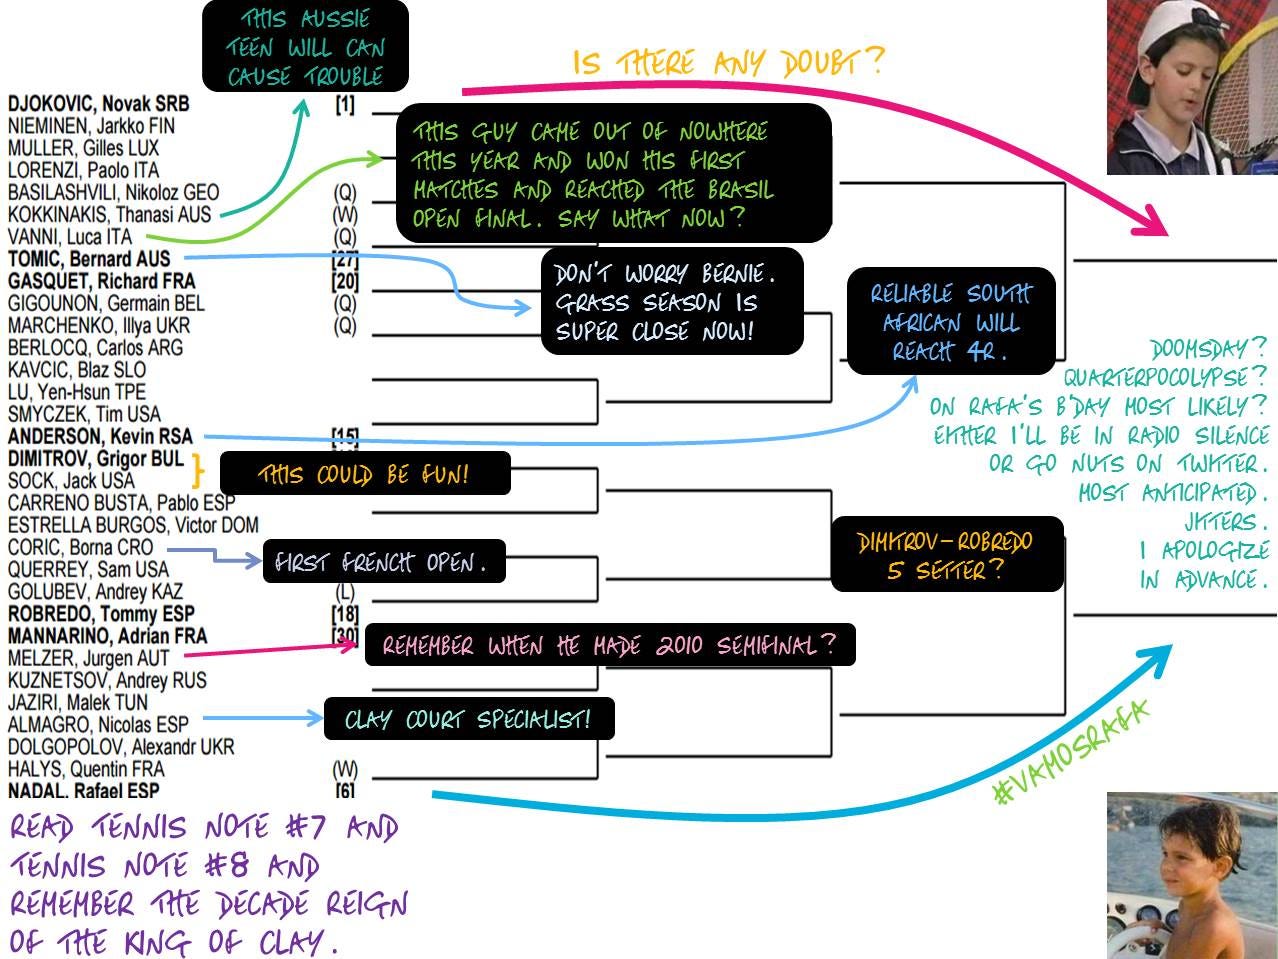 THIS AUSSIE
TEEN WILL CAN
CAUSE TROUBLE
IS THERE ANY DOUBT?
DJOKOVIC, Novak SRB [1]
NIEMINEN, Jarkko FIN
MULLER, Gilles LUX
LORENZI, Paolo ITA
BASILASHVILI, Nikoloz GEO (Q)
KOKKINAKIS, Thanasi AUS (W)
VANNI, Luca ITA (Q)
TOMIC, Bernard AUS [27]
GASQUET, Richard FRA [20]
GIGOUNON, Germain BEL (Q)
MARCHENKO, Illya UKR (Q)
BERLOCQ, Carlos ARG
KAVCIC, Blaz SLO
LU, Yen-Hsun TPE
SMYCZEK, Tim USA
ANDERSON, Kevin RSA [15]
DIMITROV, Grigor BUL
SOCK, Jack USA
CARRENO BUSTA, Pablo ESP
ESTRELLA BURGOS, Victor DOM
CORIC, Borna CRO
QUERREY, Sam USA
GOLUBEV, Andrey KAZ (L)
ROBREDO, Tommy ESP [18]
MANNARINO, Adrian FRA [30]
MELZER, Jurgen AUT
KUZNETSOV, Andrey RUS
JAZIRI, Malek TUN
ALMAGRO, Nicolas ESP
DOLGOPOLOV, Alexandr UKR
HALYS, Quentin FRA (W)
NADAL, Rafael ESP [6]
THIS GUY CAME OUT OF NOWHERE
THIS YEAR AND WON HIS FIRST
MATCHES AND REACHED THE BRASIL
OPEN FINAL. SAY WHAT NOW?
DON'T WORRY BERNIE.
GRASS SEASON IS
SUPER CLOSE NOW!
RELIABLE SOUTH
AFRICAN WILL
REACH 4R.
THIS COULD BE FUN!
FIRST FRENCH OPEN.
DIMITROV-ROBREDO
5 SETTER?
REMEMBER WHEN HE MADE 2010 SEMIFINAL?
CLAY COURT SPECIALIST!
DOOMSDAY?
QUARTERPOCOLYPSE?
ON RAFA'S B'DAY MOST LIKELY?
EITHER I'LL BE IN RADIO SILENCE
OR GO NUTS ON TWITTER.
MOST ANTICIPATED.
JITTERS.
I APOLOGIZE
IN ADVANCE.
#VAMOSRAFA
READ TENNIS NOTE #7 AND
TENNIS NOTE #8 AND
REMEMBER THE DECADE REIGN
OF THE KING OF CLAY.